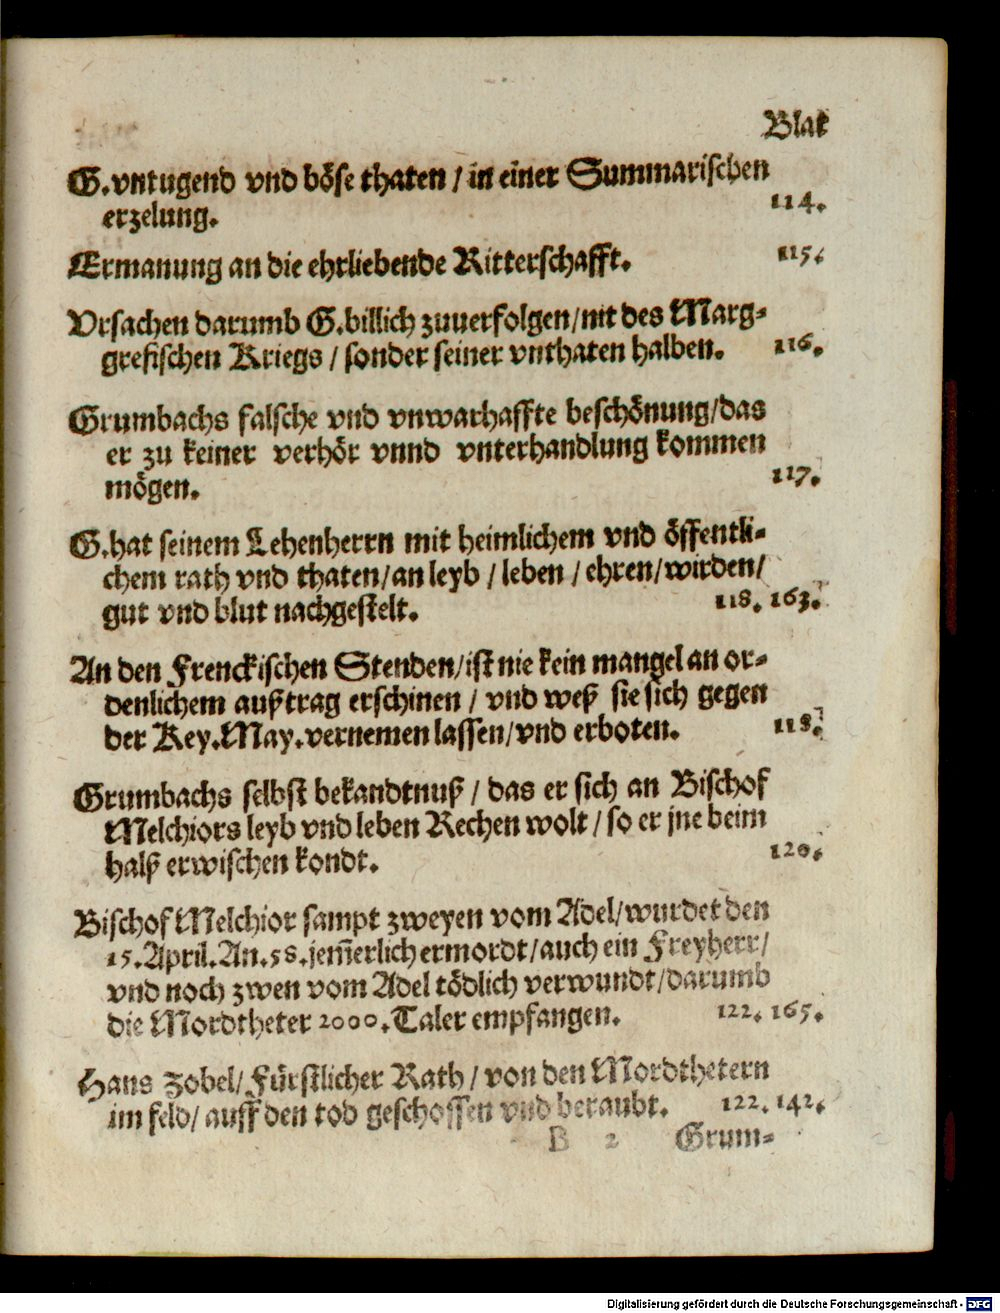 Blat
G. vntugend vnd böse thaten / in einer Summarischen
erzelung. 114.
Ermanung an die ehrliebende Ritterschafft. 115.
Vrsachen darumb G. billich zuuerfolgen / nit des Marg-
grefischen Kriegs / sonder seiner vnthaten halben. 116.
Grumbachs falsche vnd vnwarhaffte beschönung / das
er zu keiner verhör vnnd vnterhandlung kommen
mögen. 117.
G. hat seinem Lehenherrn mit heimlichem vnd öffentli-
chem rath vnd thaten / an leyb / leben / ehren / wirden /
gut vnd blut nachgestelt. 118. 163.
An den Frenckischen Stenden / ist nie kein mangel an or-
denlichem außtrag erschinen / vnd weß sie sich gegen
der Key. May. vernemen lassen / vnd erboten. 118.
Grumbachs selbst bekandtnuß / das er sich an Bischof
Melchiors leyb vnd leben Rechen wolt / so er jne beim
halß erwischen kondt. 120.
Bischof Melchior sampt zweyen vom Adel / wurdet den
15. April. An. 58. jem̃erlich ermordt / auch ein Freyherr /
vnd noch zwen vom Adel tödlich verwundt / darumb
die Mordtheter 2000. Taler empfangen. 122. 165.
Hans Zobel / Fürstlicher Rath / von den Mordthetern
im feld / auff den tod geschossen vnd beraubt. 122. 142.
B 2 Grum-
Digitalisierung gefördert durch die Deutsche Forschungsgemeinschaft - DFG